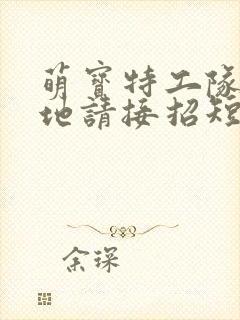 萌寶特工隊
地請接招短
余琛